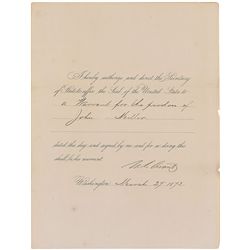 I hereby authorize and direct the Secretary
of State to affix the Seal of the United States to
a Warrant for the pardon of
John Miller
dated this day and signed by me and for so doing this
shall be his warrant.
U.S. Grant
Washington, March 29. 1872.